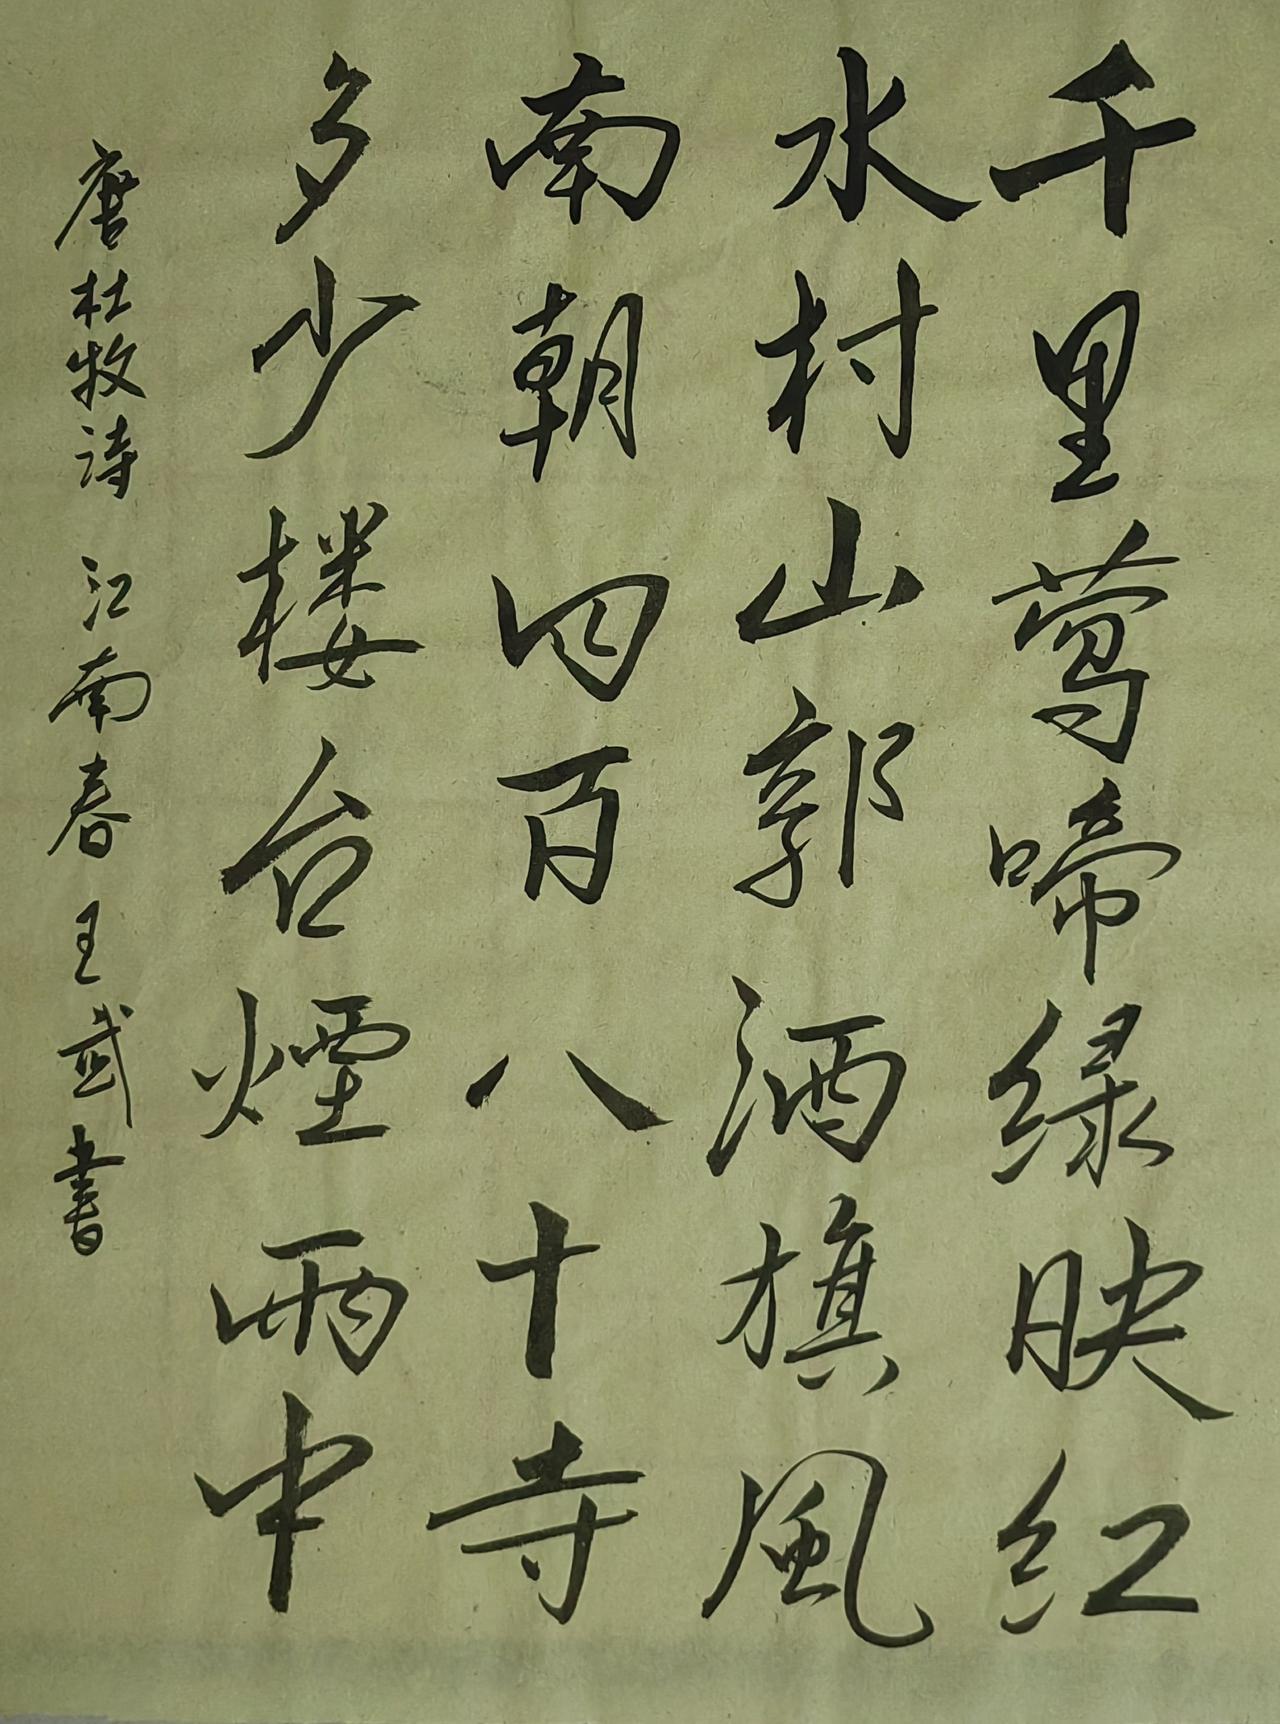 千里莺啼绿映红
水村山郭酒旗風
南朝四百八十寺
多少楼台煙雨中
唐杜牧诗 江南春 王武書